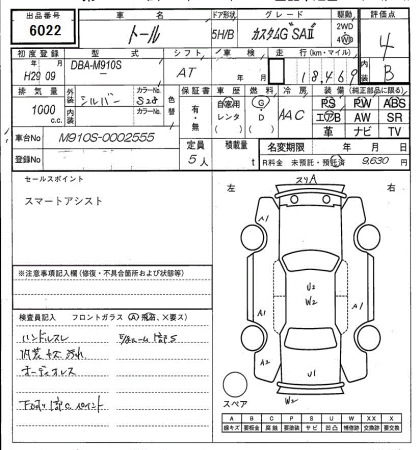 出品番号 車名 ドア形状 グレード 駆動 評価点
6022 トール 5H/B カスタムG"SAⅡ 2WD 4WD 4
初度登録 型式 シフト 車検 走行 (km・マイル) 内
H29 09 DBA-M910S AT 18,469 B
排気量 外装 カラーNo. 色替 保証書 車歴 燃料 冷房 装備 (純正部品に限る)
1000 c.c. シルバー S28 有・無 自家用 レンタ ( ) G D ( ) AAC PS PW ABS
内装 カラーNo. エアB AW SR
革 ナビ TV
車台No M910S-0002555
登録No
定員 5人 積載量 t 名変期限 年 月 日
R料金 未預託・預託 9,630
セールスポイント
スマートアシスト
左 スリA 右
A1
A1 A1
U2
W2
A2
U1
W2
スペア
※注意事項記入欄 (修復・不具合箇所および状態等)
検査員記入 フロントガラス (A)飛石、×要ス)
ハンドルスレ
内装キズ汚れ
オーディオレス
A B C P S U W XX X
線キズ 要板金 腐蝕 要塗装 サビ 凹凸 補修跡 交換跡 要交換